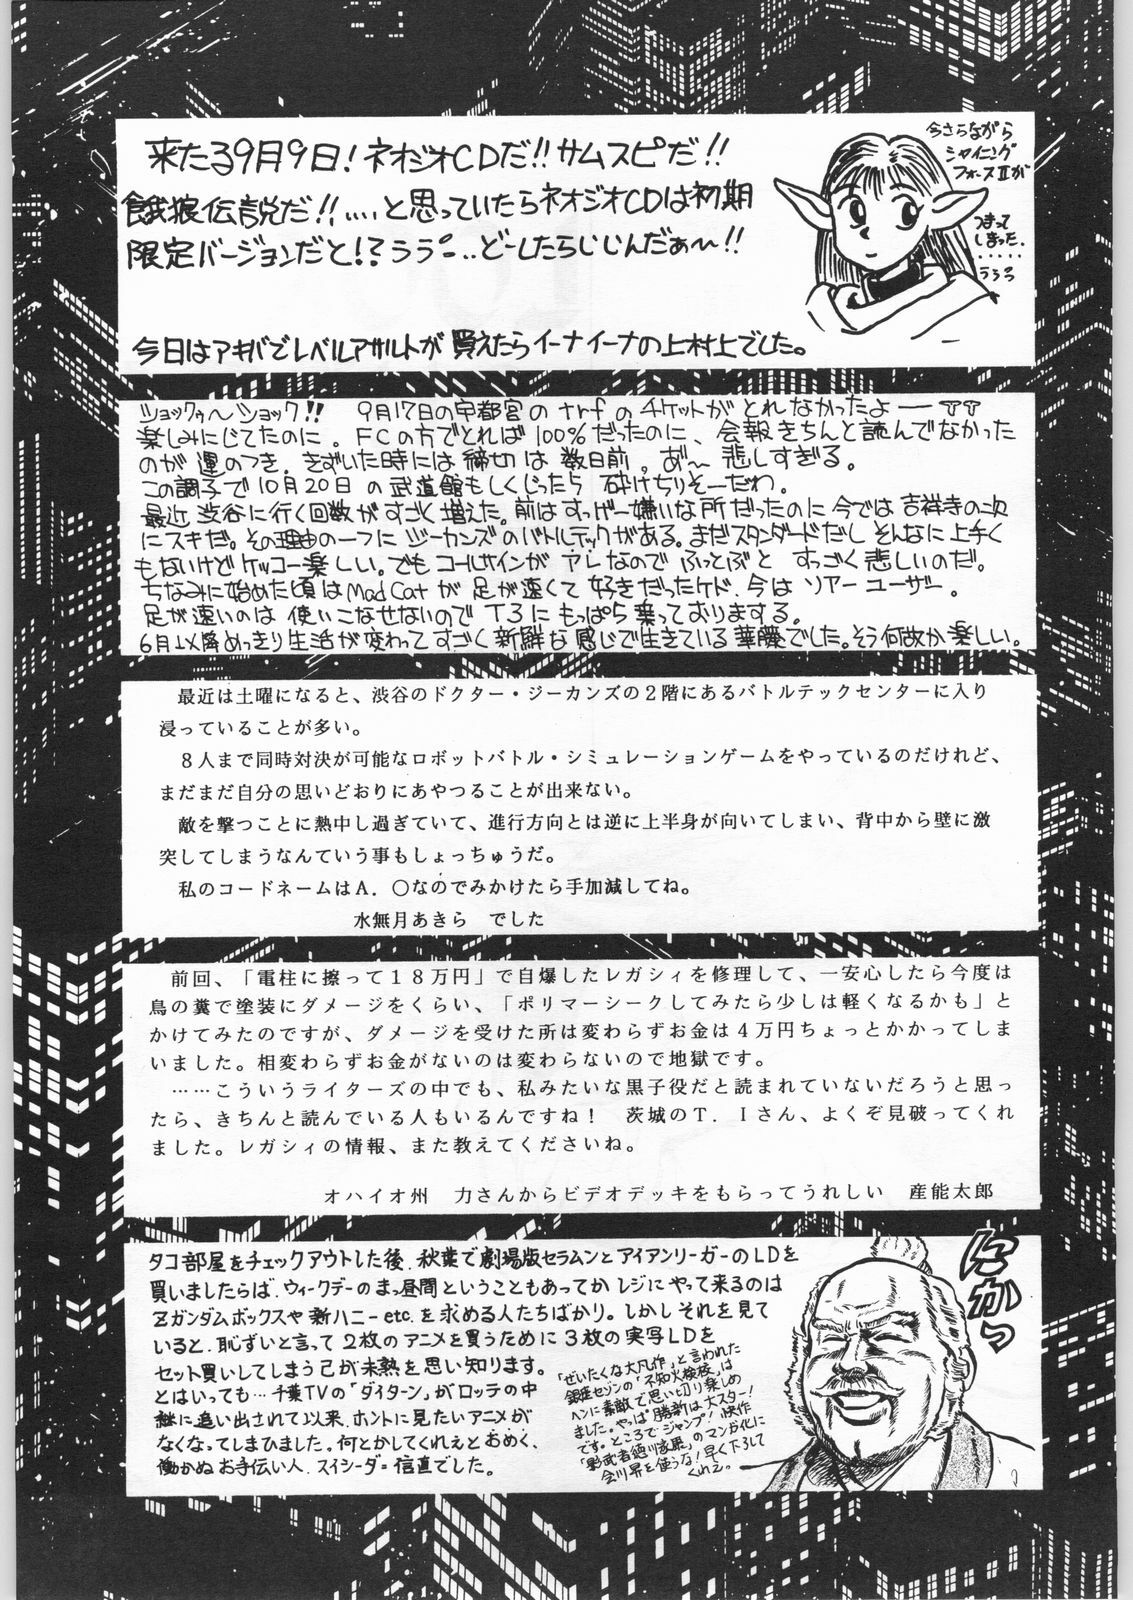 来たる9月9日!ネオジオCDだ!!サムスピだ!!
餓狼伝説だ!!‥‥と思っていたらネオジオCDは初期
限定バージョンだと!?ううー‥どーしたらじじんだぁ〜!!
今さらながら
シャイニング
フォースⅡが
つまって
しまった.
‥‥‥
うぅぅ
今日はアキバでレベルアサルトが買えたらイーナイーナの上村上でした。
ショックゥ〜ショック!! 9月17日の宇都宮のtrfのチケットがとれなかったよー TT
楽しみにしてたのに。FCの方でとれば100%だったのに、会報きちんと読んでなかった
のが運のつき.きずいた時には締切は数日前。あ゛〜悲しすぎる。
この調子で10月20日の武道館もしくじったら砕けちりそーだわ。
最近渋谷に行く回数がすごく増えた。前はすっげー嫌いな所だったのに今では吉祥寺の次
にスキだ。その理由の一つにジーカンズのバトルテックがある。まだスタンダードだしそんなに上手く
もないけどケッコー楽しい。でもコールサインがアレなのでふっとぶとすっごく悲しいのだ。
ちなみに始めた頃はMad Catが足が速くて好きだったケド.今はソアーユーザー。
足が速いのは使いこなせないのでT3にもっぱら乗っておりまする。
6月以降めっきり生活が変わってすごく新鮮な感じで生きている華藤でした。そう何故か楽しい。
最近は土曜になると、渋谷のドクター・ジーカンズの2階にあるバトルテックセンターに入り
浸っていることが多い。
8人まで同時対決が可能なロボットバトル・シミュレーションゲームをやっているのだけれど、
まだまだ自分の思いどおりにあやつることが出来ない。
敵を撃つことに熱中し過ぎていて、進行方向とは逆に上半身が向いてしまい、背中から壁に激
突してしまうなんていう事もしょっちゅうだ。
私のコードネームはA.〇なのでみかけたら手加減してね。
水無月あきら でした
前回、「電柱に擦って18万円」で自爆したレガシィを修理して、一安心したら今度は
鳥の糞で塗装にダメージをくらい、「ポリマーシークしてみたら少しは軽くなるかも」と
かけてみたのですが、ダメージを受けた所は変わらずお金は4万円ちょっとかかってしま
いました。相変わらずお金がないのは変わらないので地獄です。
……こういうライターズの中でも、私みたいな黒子役だと読まれていないだろうと思っ
たら、きちんと読んでいる人もいるんですね! 茨城のT.Iさん、よくぞ見破ってくれ
ました。レガシィの情報、また教えてくださいね。
オハイオ州 力さんからビデオデッキをもらってうれしい 産能太郎
タコ部屋をチェックアウトした後.秋葉で劇場版セラムンとアイアンリーガーのLDを
買いましたらば.ウィークデーのまっ昼間ということもあってかレジにやって来るのは
Zガンダムボックスや新ハニーetc.を求める人たちばかり。しかしそれを見て
いると.恥ずいと言って2枚のアニメを買うために3枚の実写LDを
セット買いしてしまう己が未熟を思い知ります。
とはいっても…千葉TVの「ダイターン」がロッテの中
継に追い出されて以来.ホントに見たいアニメが
なくなってしまひました。何とかしてくれぇとおめく、
働かぬお手伝い人.スイシーダ=信直でした。
「ぜいたくな大凡作」と言われた
銀座セゾンの「不知火検校」は
ヘンに素敵で思い切り楽しめ
ました。やっぱ勝新は大スター!
です。ところでジャンプ!快作
「影武者徳川家康」のマンガ化に
会川昇を使うな!早く下ろして
くれえ。
にかっ